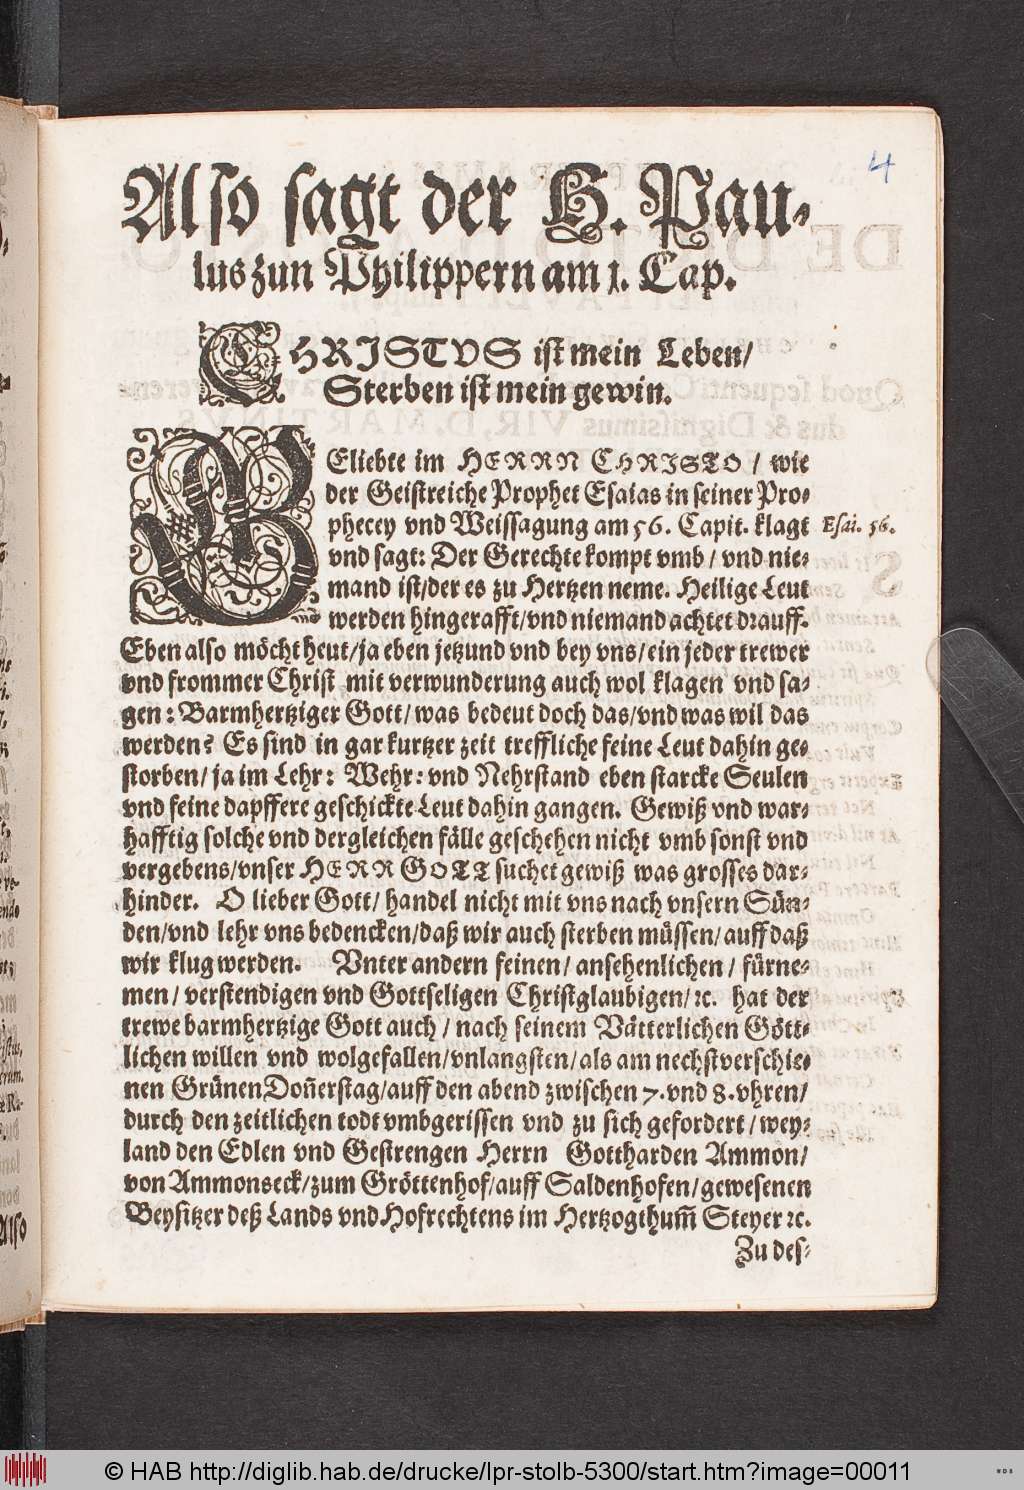 4
Also sagt der H. Pau-
lus zun Philippern am 1. Cap.
CHRISTVS ist mein Leben/
Sterben ist mein gewin.
GEliebte im HERRN CHRISTO / wie
der Geistreiche Prophet Esaias in seiner Pro-
phecey vnd Weissagung am 56. Capit. klagt
Esai. 56.
vnd sagt: Der Gerechte kompt vmb / vnd nie-
mand ist/der es zu Hertzen neme. Heilige Leut
werden hingerafft/vnd niemand achtet drauff.
Eben also möcht heut/ja eben jetzund vnd bey vns/ein jeder trewer
vnd frommer Christ mit verwunderung auch wol klagen vnd sa-
gen: Barmhertziger Gott/was bedeut doch das/vnd was wil das
werden? Es sind in gar kurtzer zeit treffliche feine Leut dahin ge-
storben/ja im Lehr: Wehr: vnd Nehrstand eben starcke Seulen
vnd feine dapffere geschickte Leut dahin gangen. Gewiß vnd war-
hafftig solche vnd dergleichen fälle geschehen nicht vmb sonst vnd
vergebens/vnser HERR GOTT suchet gewiß was grosses dar-
hinder. O lieber Gott/handel nicht mit vns nach vnsern Sün-
den/vnd lehr vns bedencken/daß wir auch sterben müssen/auff daß
wir klug werden. Vnter andern feinen/ansehenlichen/fürne-
men/verstendigen vnd Gottseligen Christglaubigen/ꝛc. hat der
trewe barmhertzige Gott auch / nach seinem Vätterlichen Gött-
lichen willen vnd wolgefallen/vnlangsten/als am nechstverschie-
nen Grünen Doñerstag/auff den abend zwischen 7. vnd 8. vhren/
durch den zeitlichen todt vmbgerissen vnd zu sich gefordert/wey-
land den Edlen vnd Gestrengen Herrn Gottharden Ammon/
von Ammonseck/zum Gröttenhof/auff Saldenhofen/gewesenen
Beysitzer deß Lands vnd Hofrechtens im Hertzogthum̃ Steyer ꝛc.
Zu des-
© HAB http://diglib.hab.de/drucke/lpr-stolb-5300/start.htm?image=00011